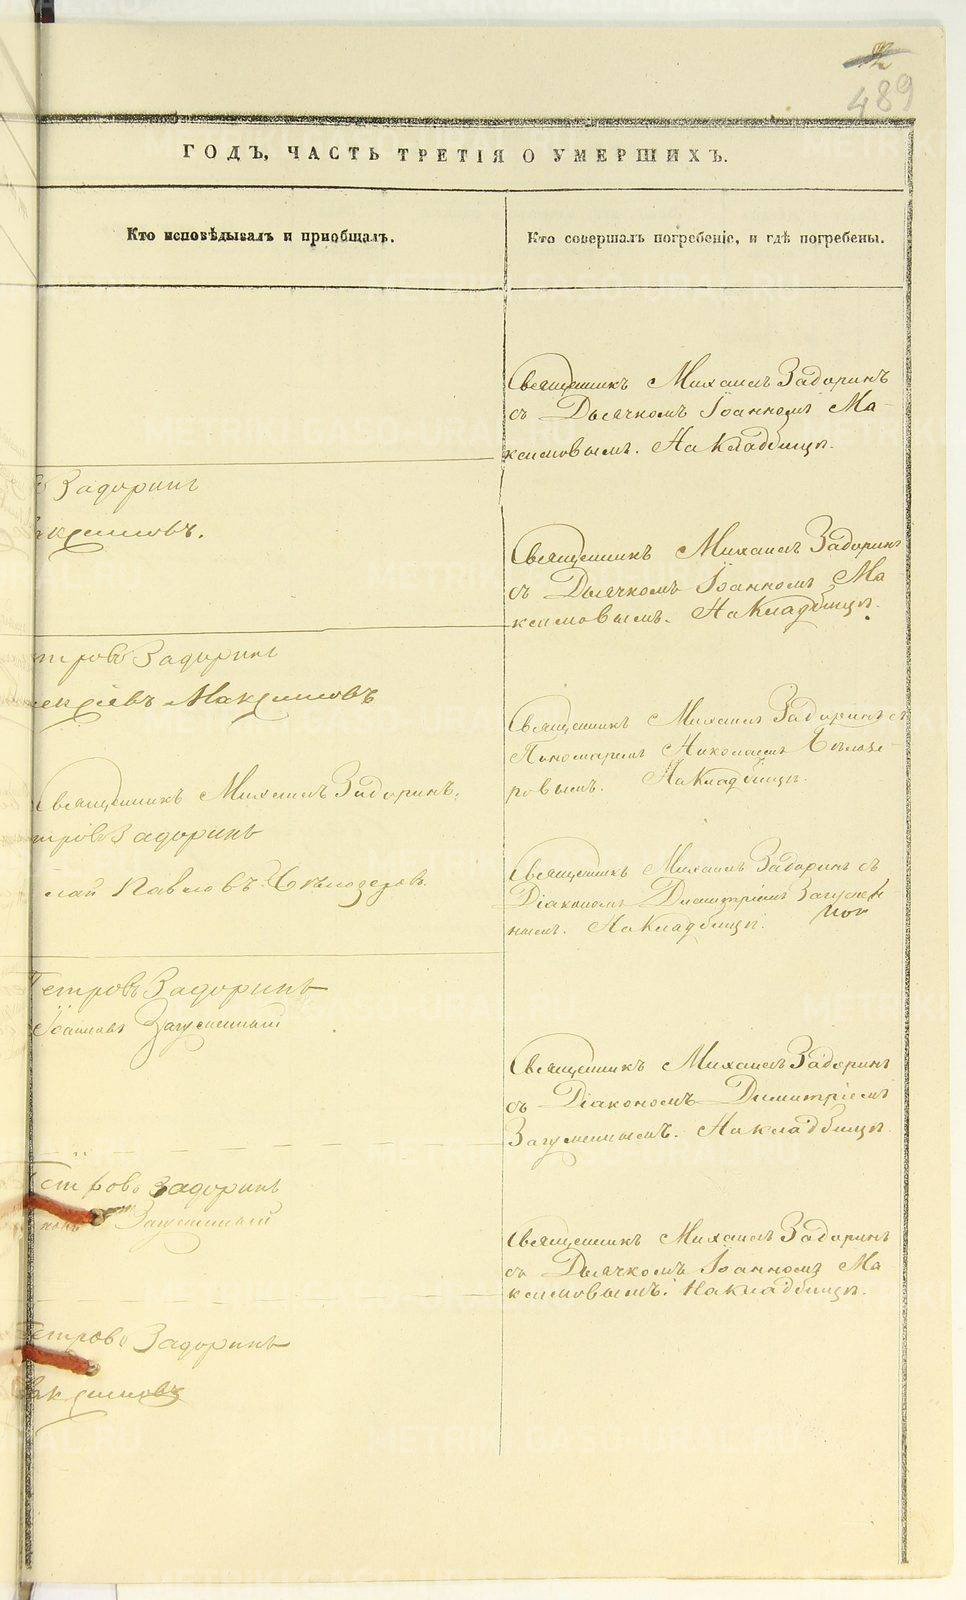 489
ГОДЪ, ЧАСТЬ ТРЕТІЯ О УМЕРШИХЪ.
Кто исповѣдывалъ и приобщалъ.
Кто совершалъ погребеніе, и гдѣ погребены.
Священникъ Михаилъ Задоринъ
съ Дьячкомъ Іоанномъ Ма-
ксимовымъ. На Кладбищѣ.
Задоринъ
ксимовъ.
Священникъ Михаилъ Задоринъ
съ Дьячкомъ Іоанномъ Ма
ксимовымъ. На Кладбищѣ.
тровъ Задоринъ
ексіевъ Максимовъ
Священникъ Михаилъ Задоринъ съ
Пономаремъ Николаемъ Бѣлозе-
ровымъ. На Кладбищѣ.
Священникъ Михаилъ Задоринъ,
тровъ Задоринъ
лай Павловъ Бѣлозеровъ.
Священникъ Михаилъ Задоринъ съ
Діакономъ Димитріемъ Загумен
нымъ. На Кладбищѣ.
Петровъ Задоринъ
Іоанновъ Загуменный
Священникъ Михаилъ Задоринъ
съ Діакономъ Димитріемъ
Загуменнымъ. На кладбищѣ
Петровъ Задоринъ
Загуменный
Священникъ Михаилъ Задоринъ
съ Дьячкомъ Іоанномъ Ма
ксимовымъ. На кладбищѣ.
етровъ Задоринъ
аксимовъ
METRIKI.GASO-URAL.RU